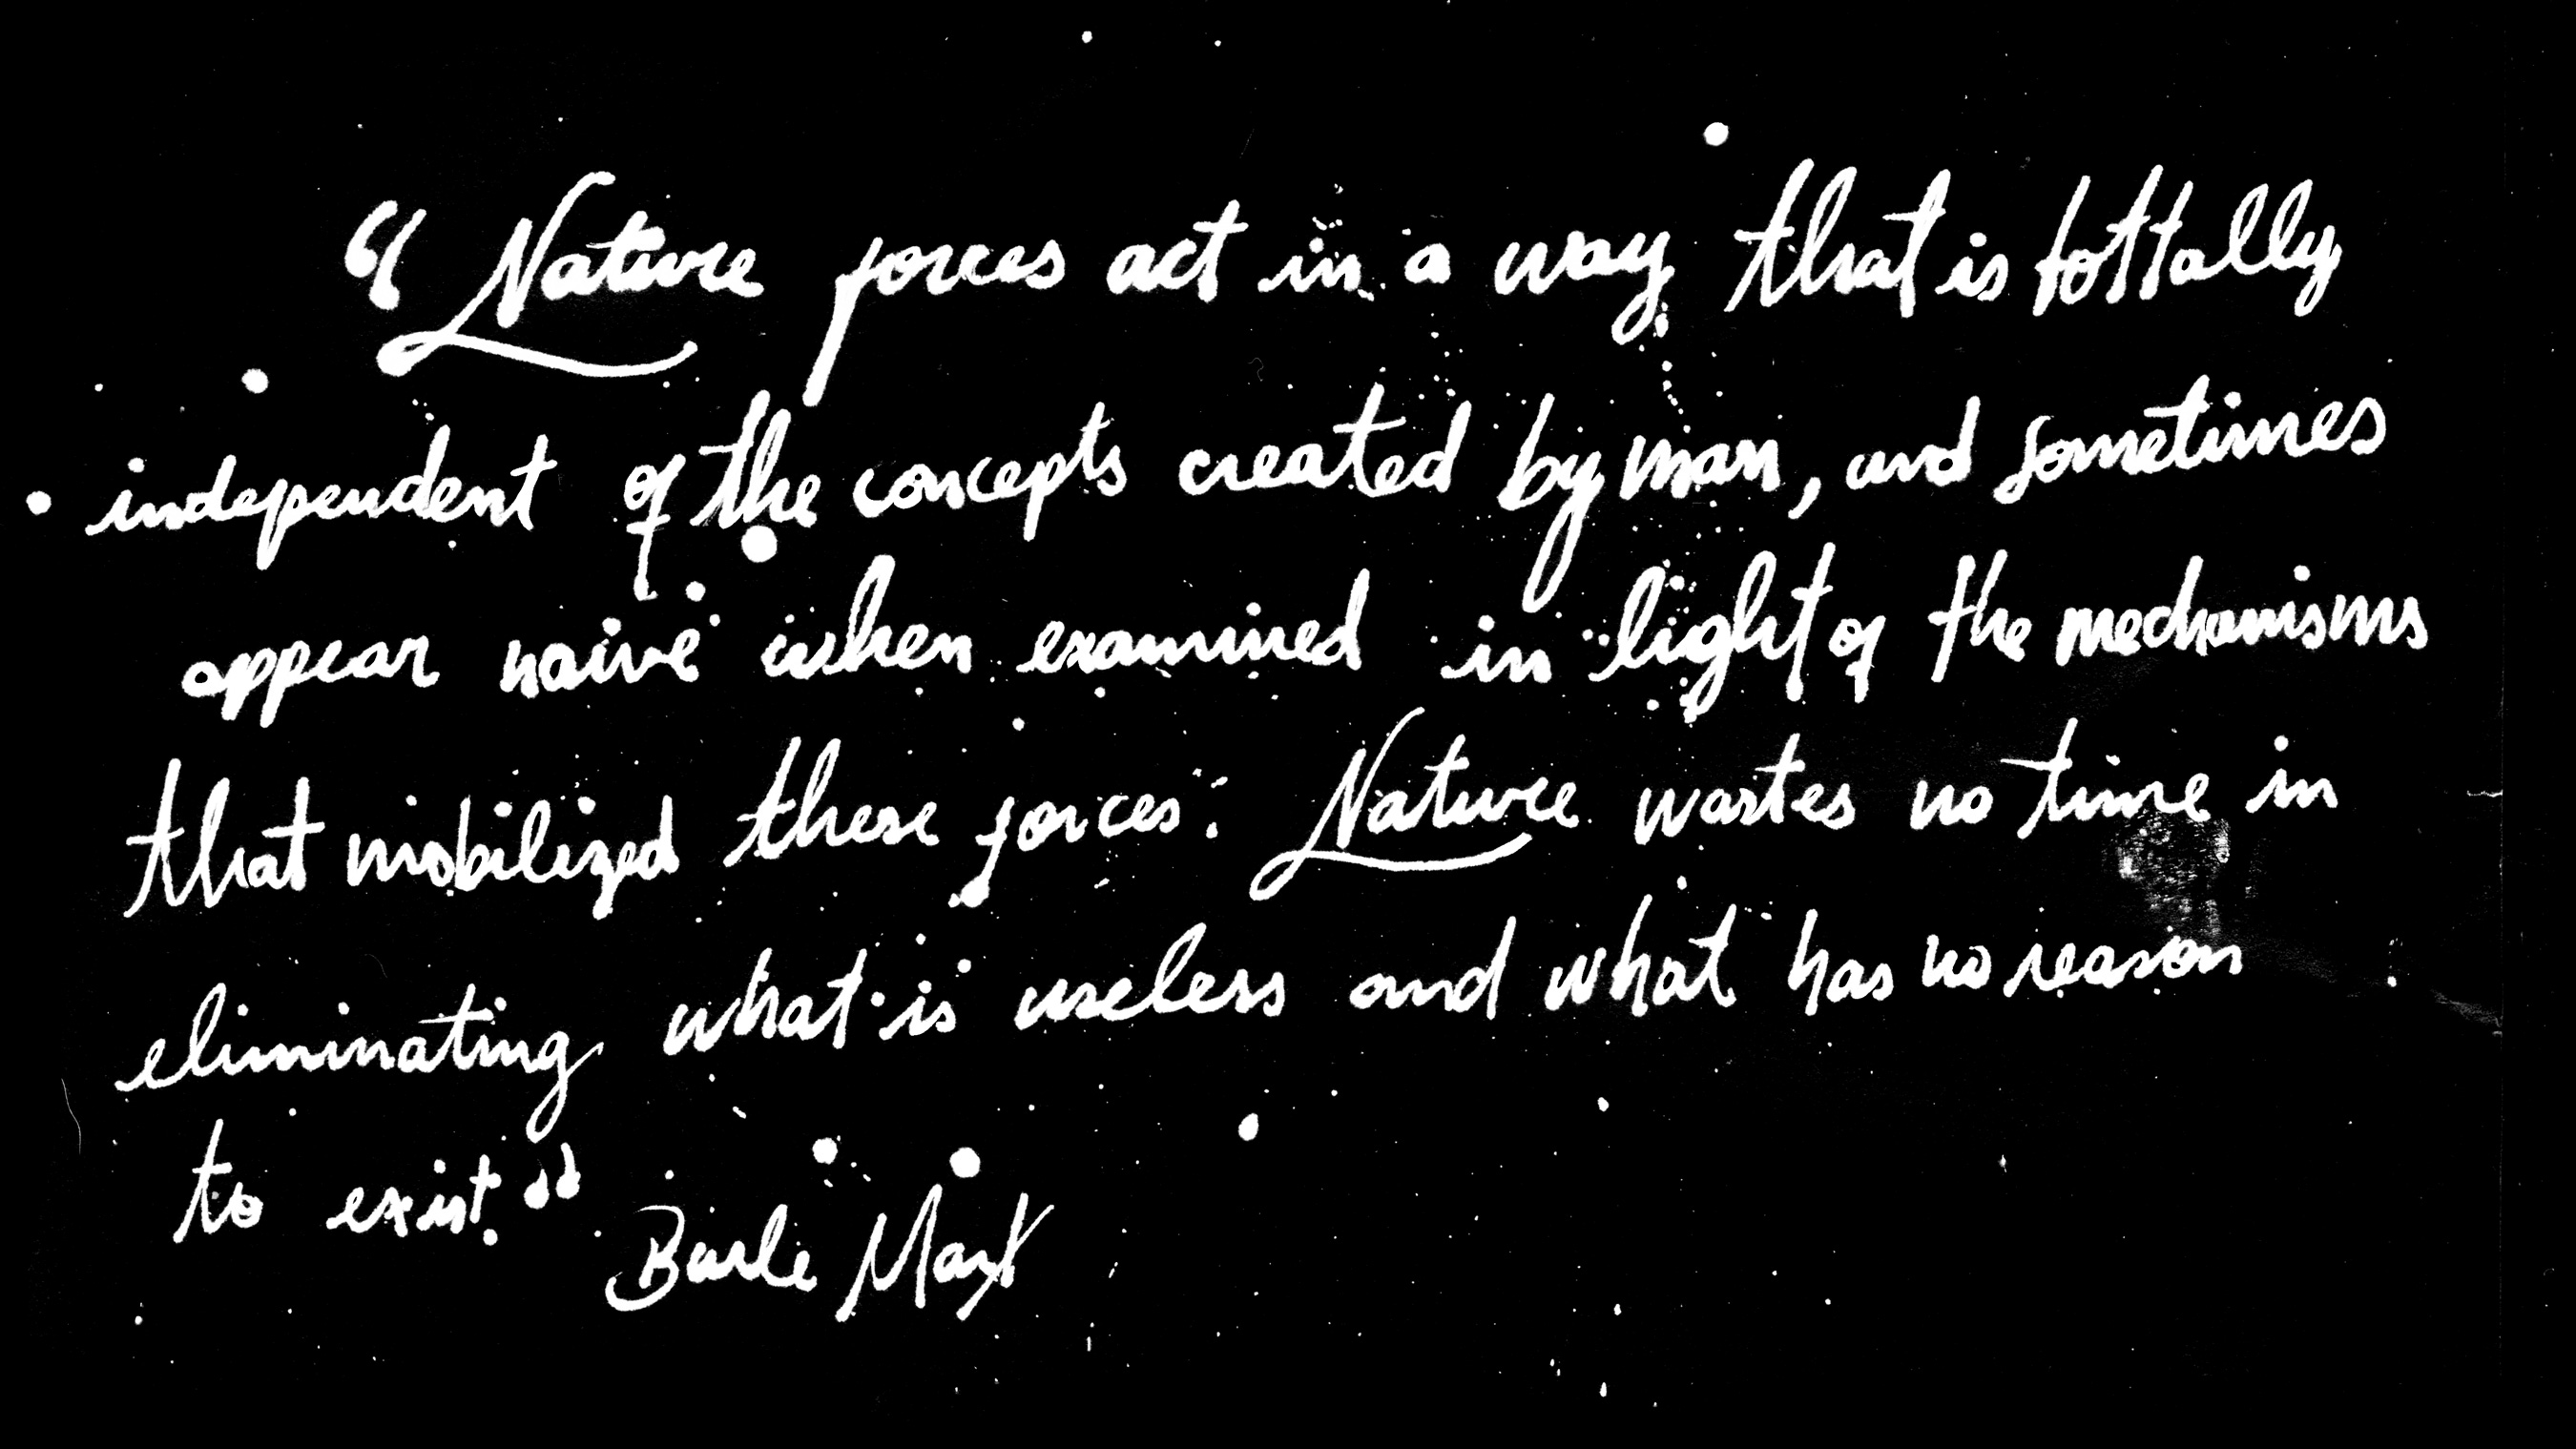 “Nature forces act in a way that is tottally
independent of the concepts created by man, and sometimes
appear naive when examined in light of the mechanisms
that mobilized these forces: Nature wastes no time in
eliminating what is useless and what has no reason
to exist.”
Burle Marx